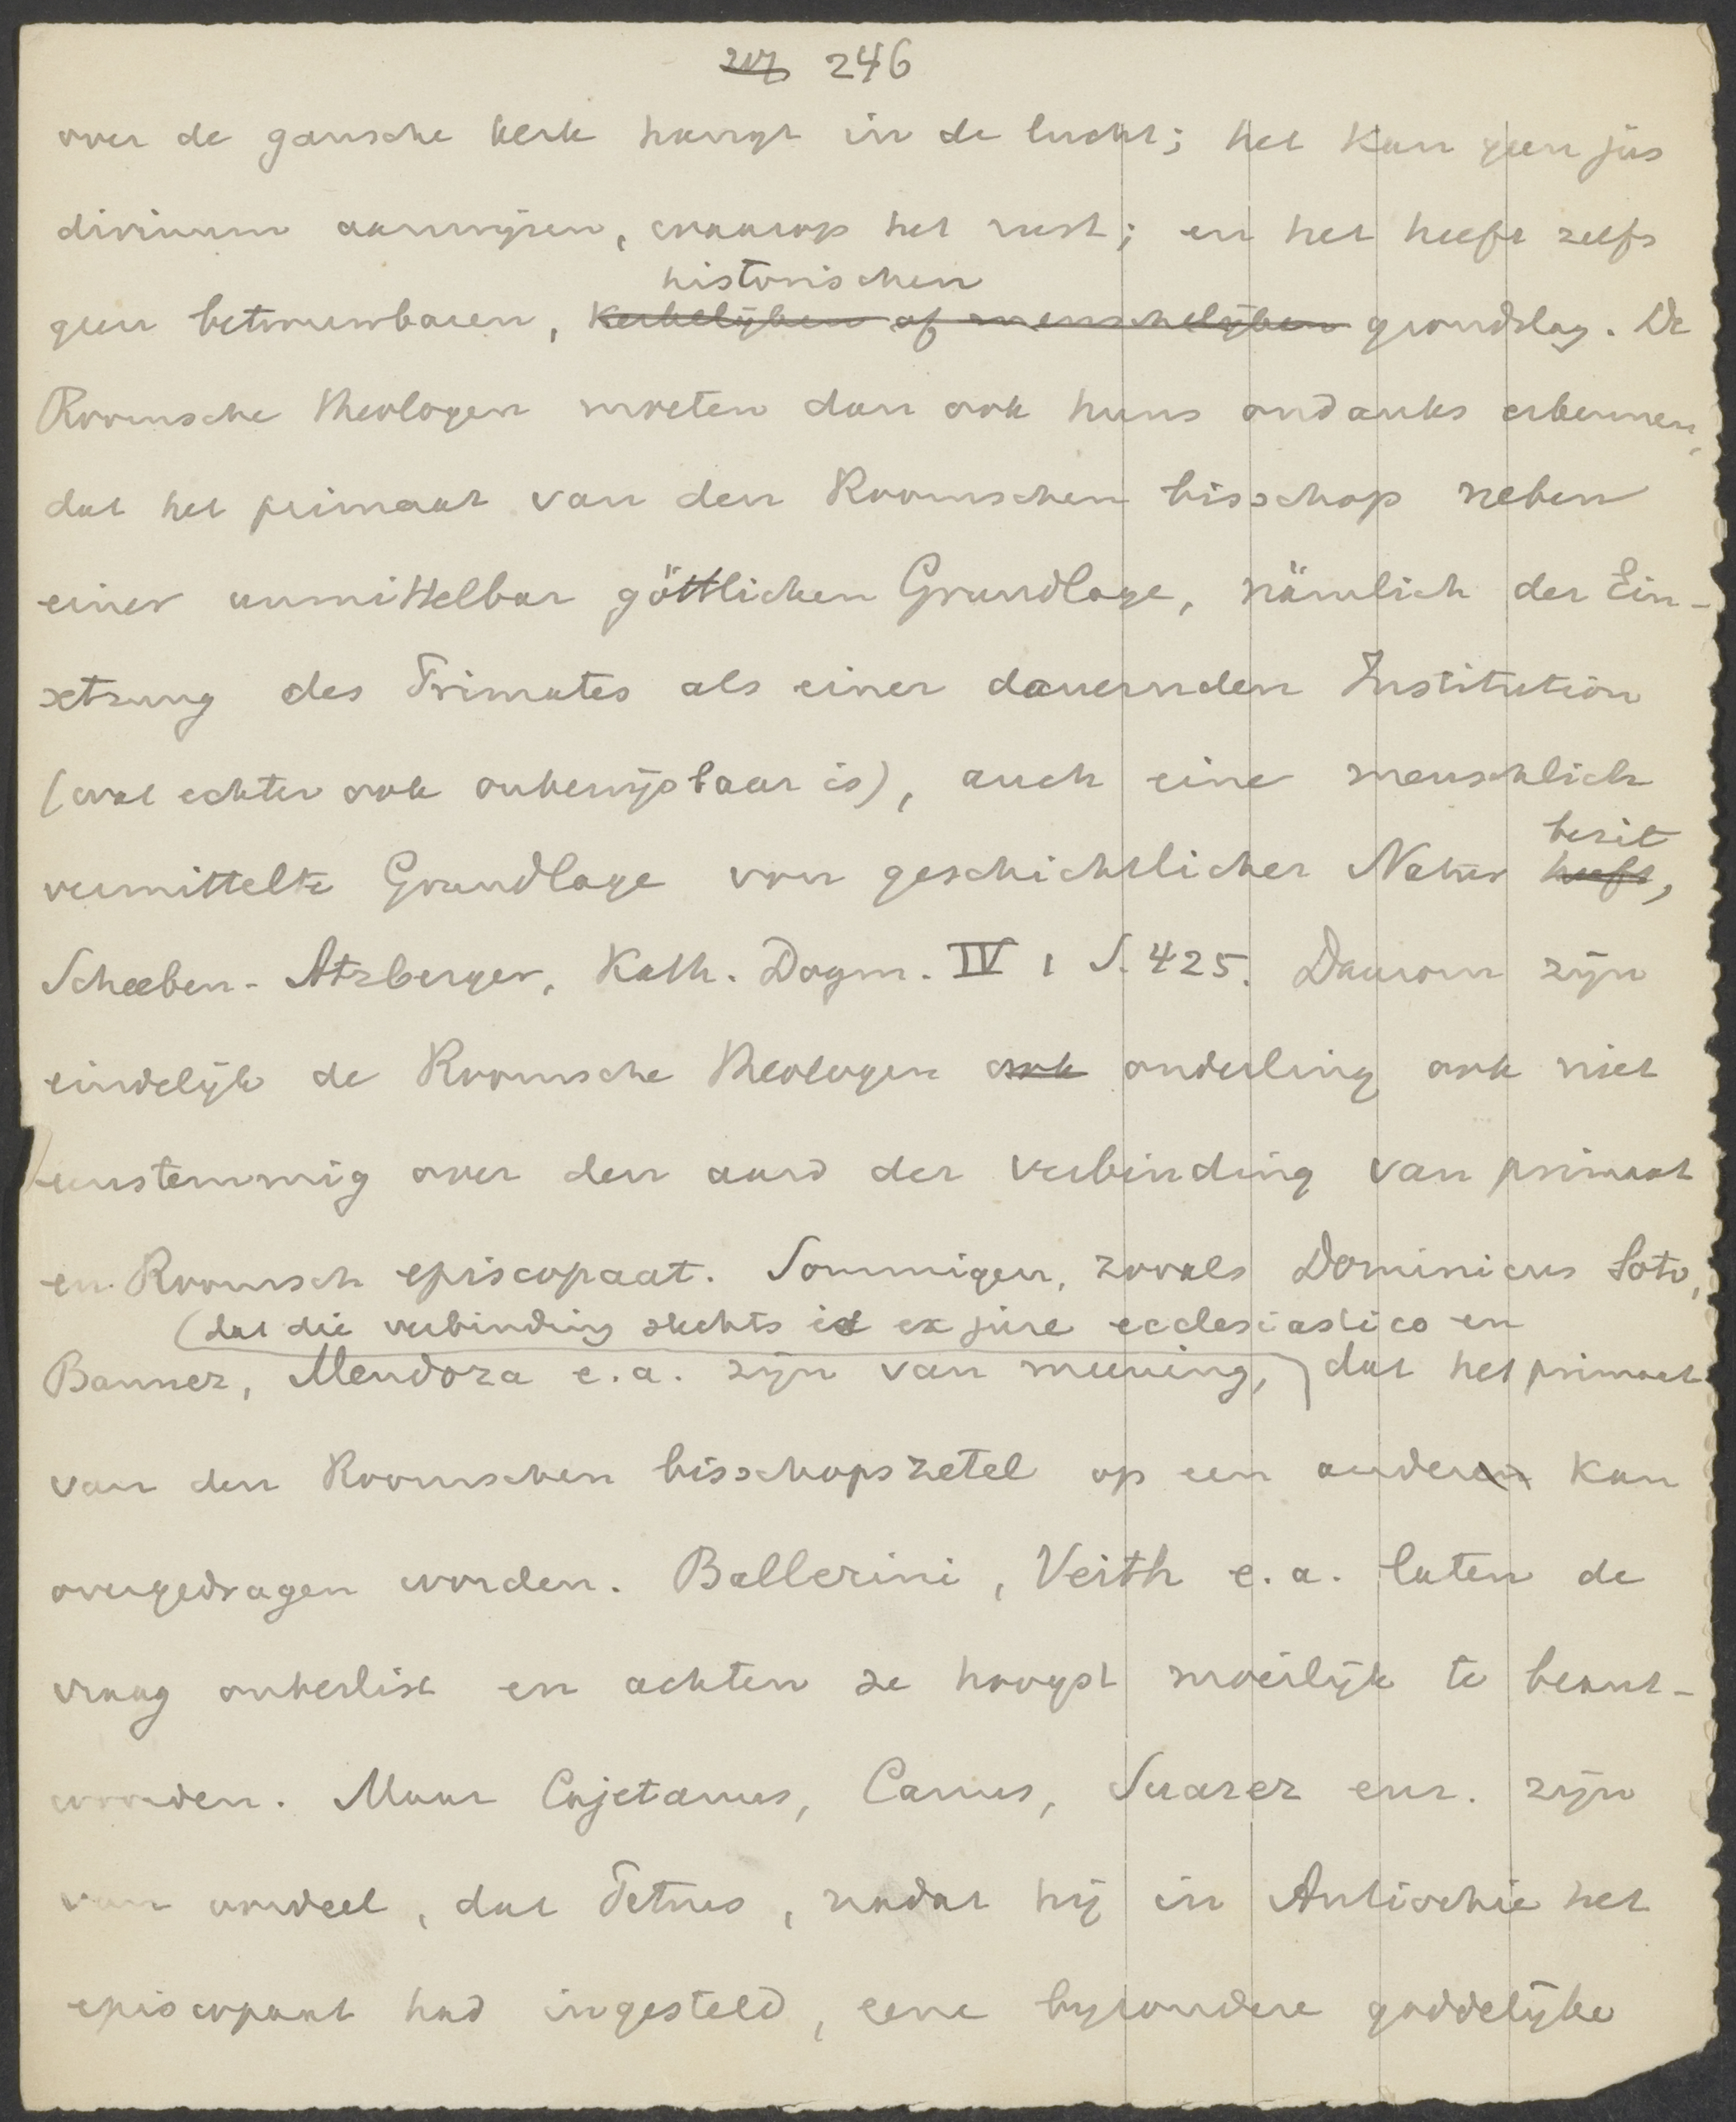 246
over de gansche kerk hangt in de lucht; het kan geen jus
divinum aanwijzen, waarop het rust; en het heeft zelfs
historischen
geen betrouwbaren, kerkelijken of menschelijken grondslag. De
Roomsche theologen moeten dan ook huns ondanks erkennen,
dat het primaat van den Roomschen bisschop neben
einer unmittelbar göttlichen Grundlage, nämlich der Ein-
setzung des Primates als einer dauernden Institution
(wat echter ook onbewijsbaar is), auch eine menschlich
bezit
vermittelte Grundlage von geschichtlicher Natur heeft,
Scheeben-Atzberger, Kath. Dogm. IV 1 S. 425. Daarom zijn
eindelijk de Roomsche theologen ook onderling ook niet
eenstemmig over den aard der verbinding van primaat
en Roomsch episcopaat. Sommigen, zooals Dominicus Soto,
(dat die verbinding slechts is ex jure ecclesiastico en
Bannez, Mendoza e.a. zijn van meening, dat het primaat
van den Roomschen bisschopszetel op een anderen kan
overgedragen worden. Ballerini, Veith e.a. laten de
vraag onbeslist en achten ze hoogst moeilijk te beant-
woorden. Maar Cajetanus, Canus, Suarez enz. zijn
van oordeel, dat Petrus, nadat hij in Antiochie het
episcopaat had ingesteld, eene bijzondere goddelijke